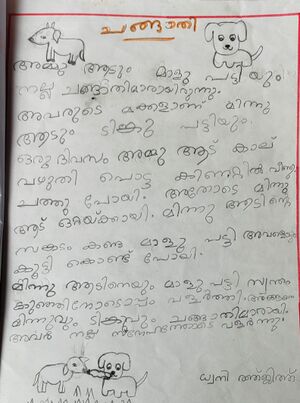 ചങ്ങാതി
അമ്മു ആടും മാളു പട്ടിയും
നല്ല ചങ്ങാതിമാരായിരുന്നു.
അവരുടെ മക്കളാണ് മിന്നു
ആടും ടിങ്കു പട്ടിയും.
ഒരു ദിവസം അമ്മു ആട് കാല്
വഴുതി പൊട്ട കിണറ്റിൽ വീണു
ചത്തു പോയി. അതോടെ മിന്നു
ആട് ഒറ്റയ്ക്കായി. മിന്നു ആടിന്റെ
സങ്കടം കണ്ട മാളു പട്ടി അവളെയും
കൂട്ടി കൊണ്ട് പോയി.
മിന്നു ആടിനെയും മാളു പട്ടി സ്വന്തം
കുഞ്ഞിനോടൊപ്പം വളർത്തി. അങ്ങനെ
മിന്നുവും ടിങ്കുവും ചങ്ങാതിമാരായി.
അവർ നല്ല സ്നേഹത്തോടെ വളർന്നു.
ധ്വനി